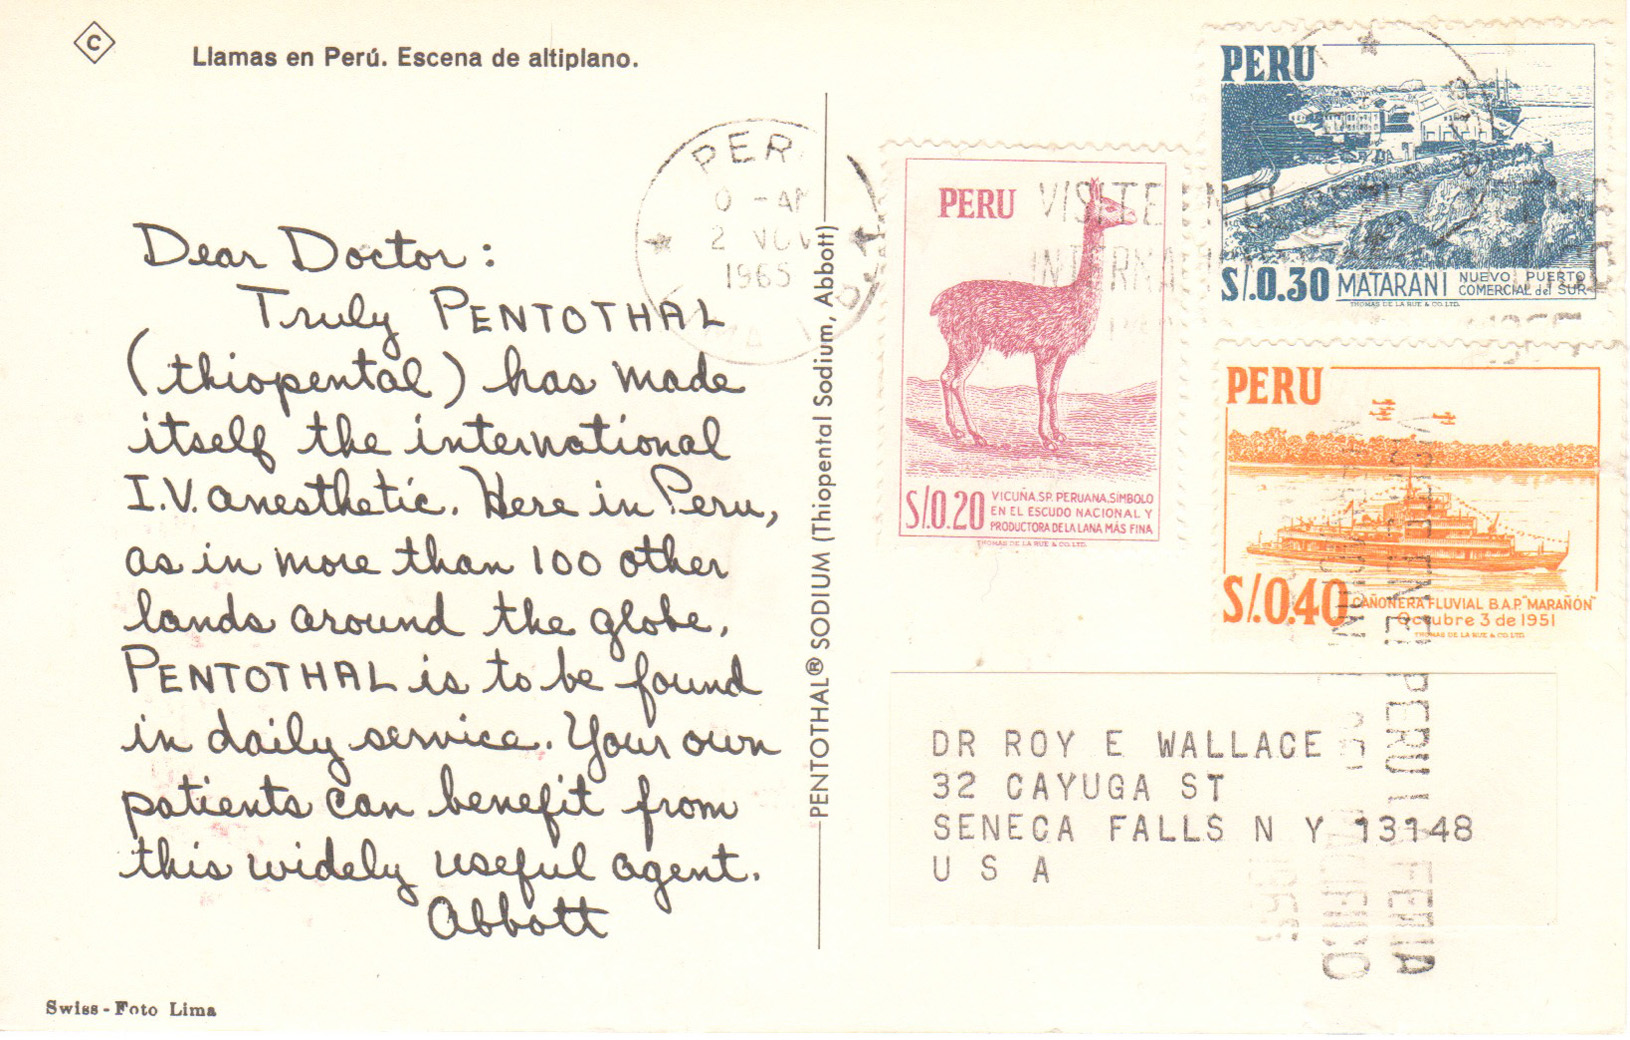 C
Llamas en Perú. Escena de altiplano.
Dear Doctor:
Truly PENTOTHAL
(thiopental) has made
itself the international
I.V. anesthetic. Here in Peru,
as in more than 100 other
lands around the globe,
PENTOTHAL is to be found
in daily service. Your own
patients can benefit from
this widely useful agent.
Abbott
Swiss-Foto Lima
PENTOTHAL® SODIUM (Thiopental Sodium, Abbott)
PER
2 NOV
1965
VISITE EN EL
PERU
S/.0.20
VICUÑA.SP. PERUANA.SIMBOLO
EN EL ESCUDO NACIONAL Y
PRODUCTORA DE LA LANA MÁS FINA
THOMAS DE LA RUE & CO. LTD.
PERU
S/.0.30 MATARANI NUEVO PUERTO
COMERCIAL del SUR
THOMAS DE LA RUE & CO. LTD.
PERU
S/.0.40
CAÑONERA FLUVIAL B.A.P. "MARAÑON"
Octubre 3 de 1951
THOMAS DE LA RUE & CO. LTD.
VISITE EN EL PERU LA FERIA
PACIFICO
1965
DR ROY E WALLACE
32 CAYUGA ST
SENECA FALLS N Y 13148
U S A